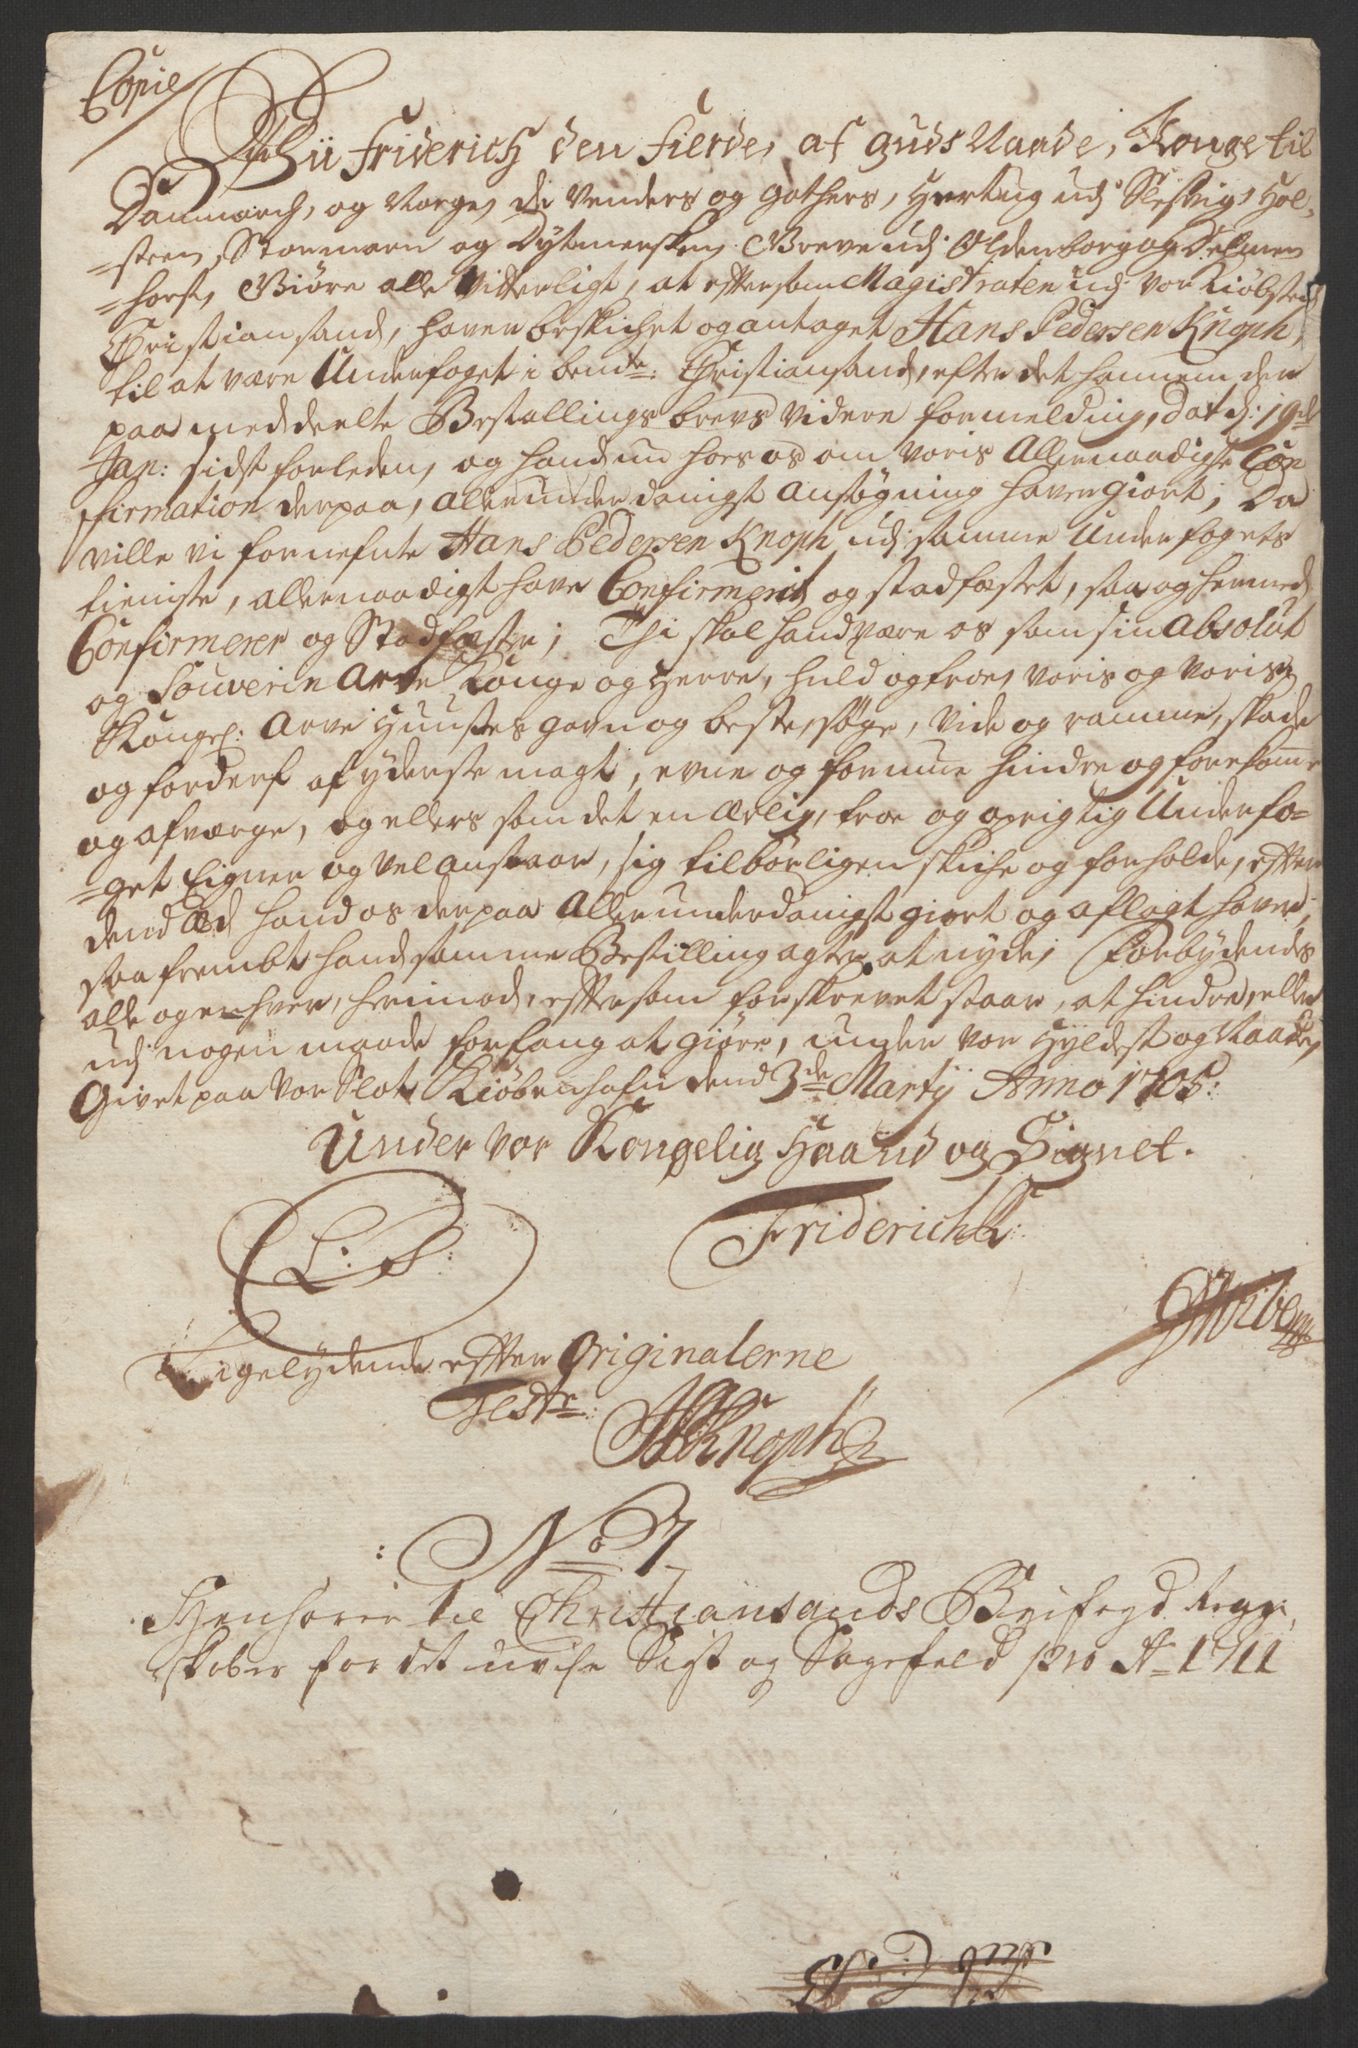 Copie
Vii Friderich den Fierde, af Guds Naade, Konge til
Danmarch, og Norge, de Venders og Gothers, Hertug udj Slesvig, Hol-
-steen, Stormarn og Dytmersken, Greve udj Oldenborg og Delmen
-horst, Giøre alle Vitterligt, at eftersom Magistraten udj vor Kiøbsted
Christiansand, haver beskichet og antaget Hans Pedersen Knoph,
til at være Underfoget i bemte: Christiansand, efter det hannem der
paa meddeelte Bestallings brevs videre formelding, dat d: 19de
Jan: sidst forleden, og hand nu hos os om voris Allernaadigste Con
firmation derpaa, allerunderdanigst ansøgning haver giort; Da
ville vi fornefnte Hans Pedersen Knoph udj samme Underfogets
tieniste, allernaadigst have Confirmerit og stadfæstet, saa og hermed
Confirmerer og Stadfæster; Thi skal hand være os som sin Absolut
og Souverin Arve Konge og Herre, huld og troe, voris og voris
Kongel: Arve Huuses gavn og beste, søge, vide og ramme, skade
og forderf af yderste magt, evne og formue hindre og forekomme
og afværge, og ellers som det en ærlig, troe og oprigtig Underfo-
-get Eigner og vel anstaar, sig tilbørligen skiche og forholde, efter
dend Æd hand os derpaa allerunderdanigst giort og aflagt haver;
saafrembt hand samme Bestilling agter at nyde; Forbydendes
alle og enhver, herimod, eftersom forskrevet staar, at hindre, eller
udj nogen maade forfang at giøre, under vor Hyldest og Naade,
Givet paa vor Slot Kiøbenhafn dend 3de Martij Anno 1705:
Under vor Kongelig Haand og Signet.
L: S: Friderich R:
Ligelydende efter Originalerne
Teste:
HPKnoph
No 7
Henhører til Christiansands Byefogd Regn-
skaber for det uvise Sigt og Sagefald pro Ao 1711